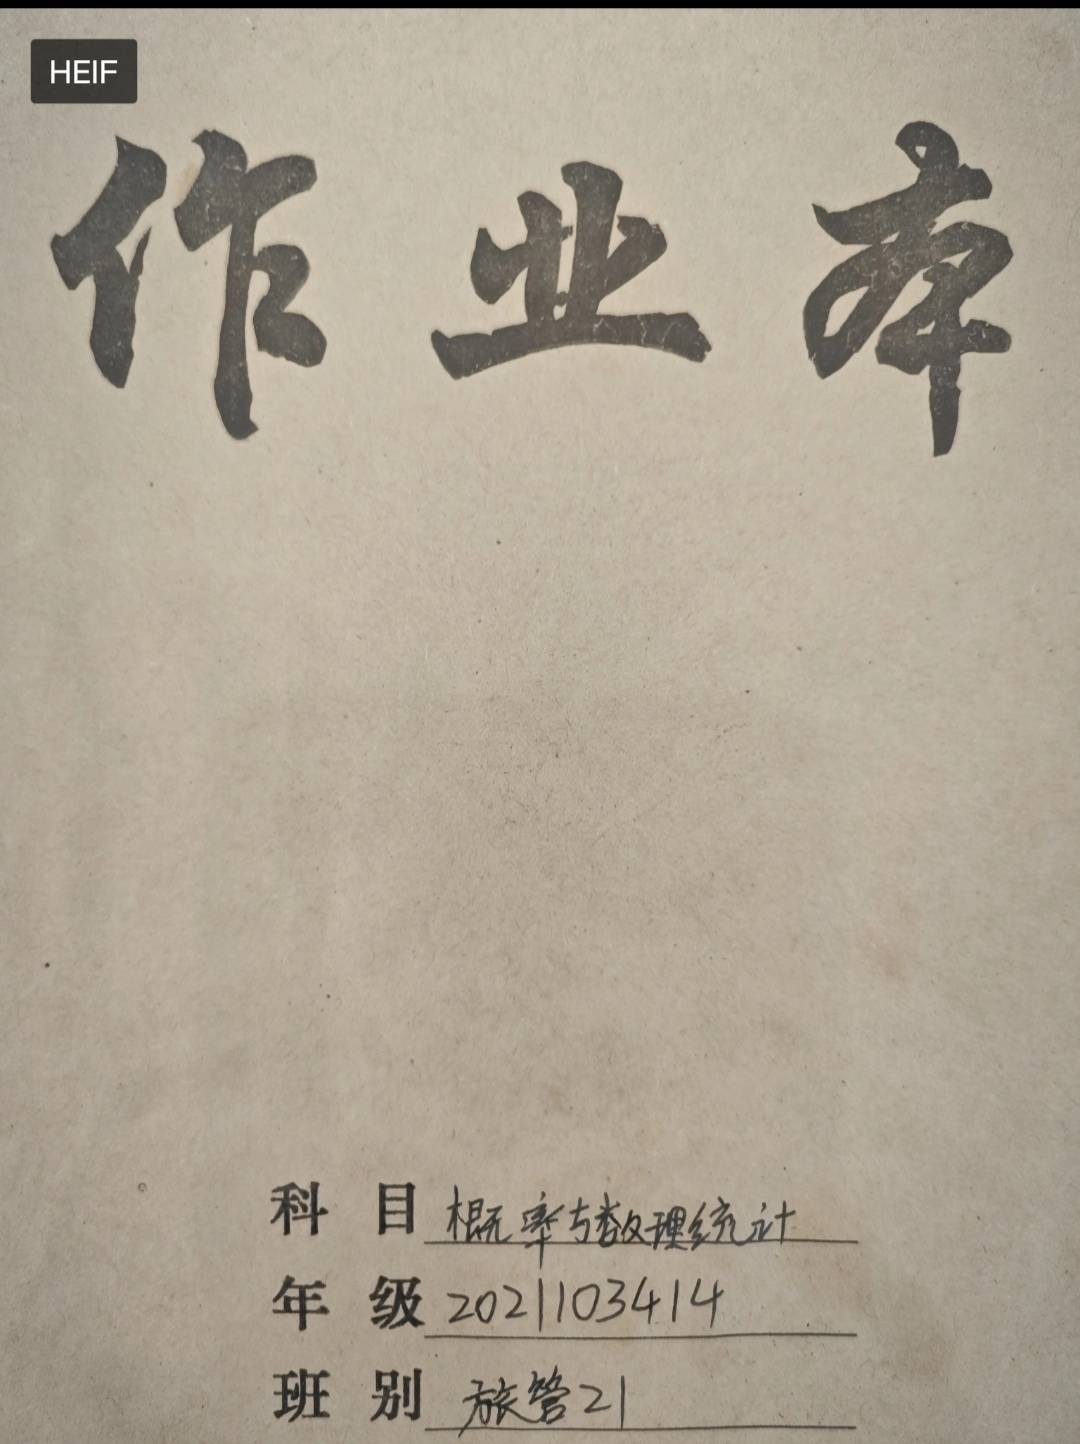 HEIF
作业本
科目 概率与数理统计
年级 20211103414
班别 旅管21